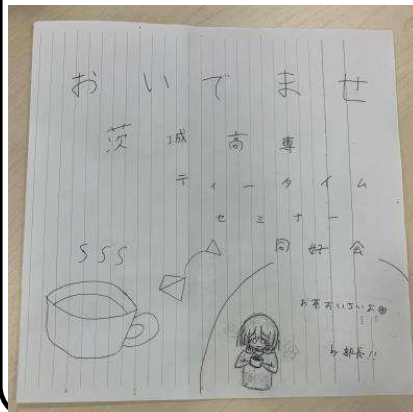 おいでませ
茨城高専
ティータイム
セミナー
同好会
お茶おいしいよ
部長!!